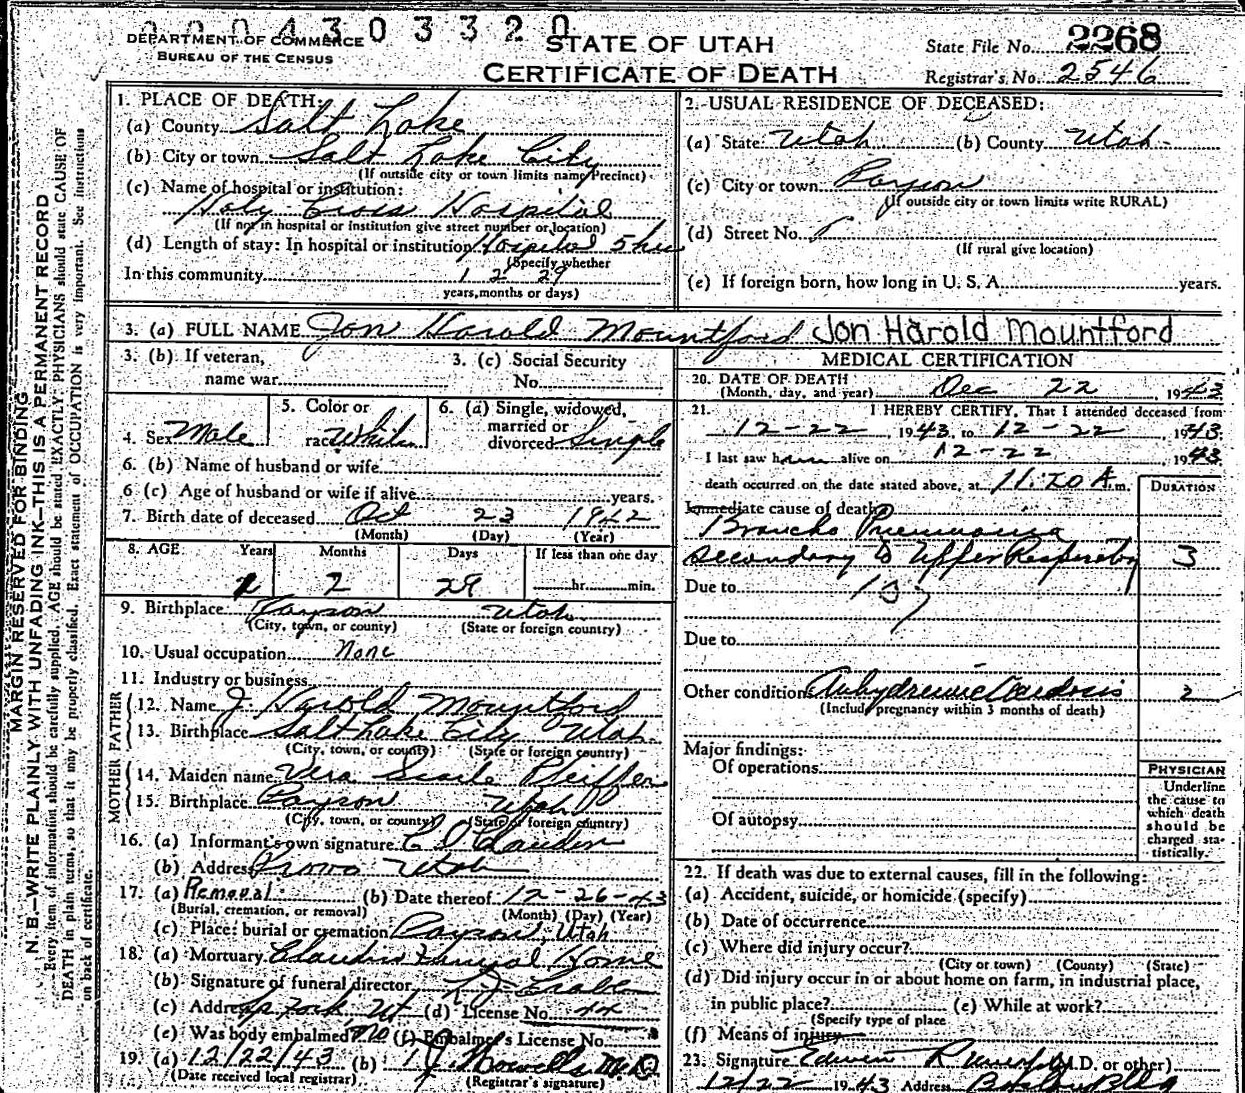 0004303320
DEPARTMENT OF COMMERCE
BUREAU OF THE CENSUS
STATE OF UTAH
CERTIFICATE OF DEATH
State File No. 2268
Registrar's No. 2546
MARGIN RESERVED FOR BINDING
N. B.—WRITE PLAINLY WITH UNFADING INK—THIS IS A PERMANENT RECORD
Every item of information should be carefully supplied. AGE should be stated EXACTLY. PHYSICIANS should state CAUSE OF
DEATH in plain terms, so that it may be properly classified. Exact statement of OCCUPATION is very important. See instructions
on back of certificate.
1. PLACE OF DEATH:
(a) County Salt Lake
(b) City or town Salt Lake City
(If outside city or town limits name Precinct)
(c) Name of hospital or institution:
Holy Cross Hospital
(If not in hospital or institution give street number or location)
(d) Length of stay: In hospital or institution Hospital 5 hrs
(Specify whether
In this community 1 2 29
years, months or days)
2. USUAL RESIDENCE OF DECEASED:
(a) State Utah (b) County Utah
(c) City or town Payson
(If outside city or town limits write RURAL)
(d) Street No.
(If rural give location)
(e) If foreign born, how long in U. S. A. years.
3. (a) FULL NAME Jon Harold Mountford Jon Harold Mountford
3. (b) If veteran,
name war
3. (c) Social Security
No.
4. Sex Male
5. Color or
race White
6. (a) Single, widowed,
married or
divorced Single
6. (b) Name of husband or wife
6 (c) Age of husband or wife if alive years.
7. Birth date of deceased Oct 23 1942
(Month) (Day) (Year)
8. AGE Years Months Days If less than one day
1 2 29 hr. min.
9. Birthplace Payson Utah
(City, town, or county) (State or foreign country)
10. Usual occupation None
11. Industry or business
FATHER
12. Name J. Harold Mountford
13. Birthplace Salt Lake City Utah
(City, town, or county) (State or foreign country)
MOTHER
14. Maiden name Vera Pfeiffer
15. Birthplace Payson Utah
(City, town, or county) (State or foreign country)
16. (a) Informant's own signature
(b) Address Provo Utah
17. (a) Removal (b) Date thereof 12-26-43
(Burial, cremation, or removal) (Month) (Day) (Year)
(c) Place: burial or cremation Payson, Utah
18. (a) Mortuary Claudin Funeral Home
(b) Signature of funeral director
(c) Address Sp Fork, Ut (d) License No.
(e) Was body embalmed No (f) Embalmer's License No.
19. (a) 12/22/43 (b)
(Date received local registrar) (Registrar's signature)
MEDICAL CERTIFICATION
20. DATE OF DEATH
(Month, day, and year) Dec 22, 1943
21. I HEREBY CERTIFY, That I attended deceased from
12-22, 1943, to 12-22, 1943.
I last saw him alive on 12-22 1943
death occurred on the date stated above, at 11:20 A.m.
DURATION
Immediate cause of death
Broncho Pneumonia
secondary to Upper Respiratory 3
Due to 107
Due to
Other conditions Anhydremic Acidosis 2
(Include pregnancy within 3 months of death)
Major findings:
Of operations
Of autopsy
PHYSICIAN
Underline
the cause to
which death
should be
charged sta-
tistically.
22. If death was due to external causes, fill in the following:
(a) Accident, suicide, or homicide (specify)
(b) Date of occurrence
(c) Where did injury occur?
(City or town) (County) (State)
(d) Did injury occur in or about home on farm, in industrial place,
in public place? (e) While at work?
(Specify type of place
(f) Means of injury
23. Signature Edwin (M.D. or other)
12/22 1943 Address Boston Bldg